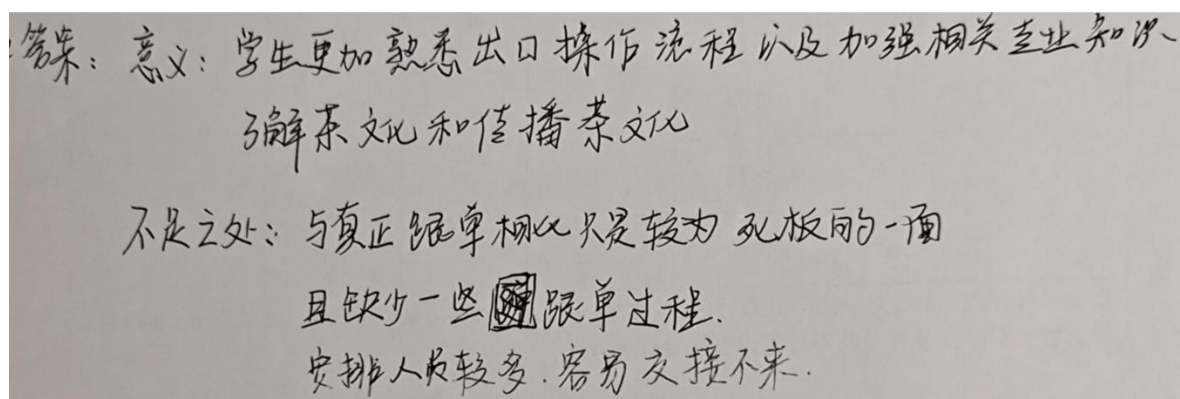 答案：意义：学生更加熟悉出口操作流程以及加强相关专业知识、
了解茶文化和传播茶文化
不足之处：与真正跟单相比只是较为死板的一面
且缺少一些跟单过程.
安排人员较多.容易交接不来.